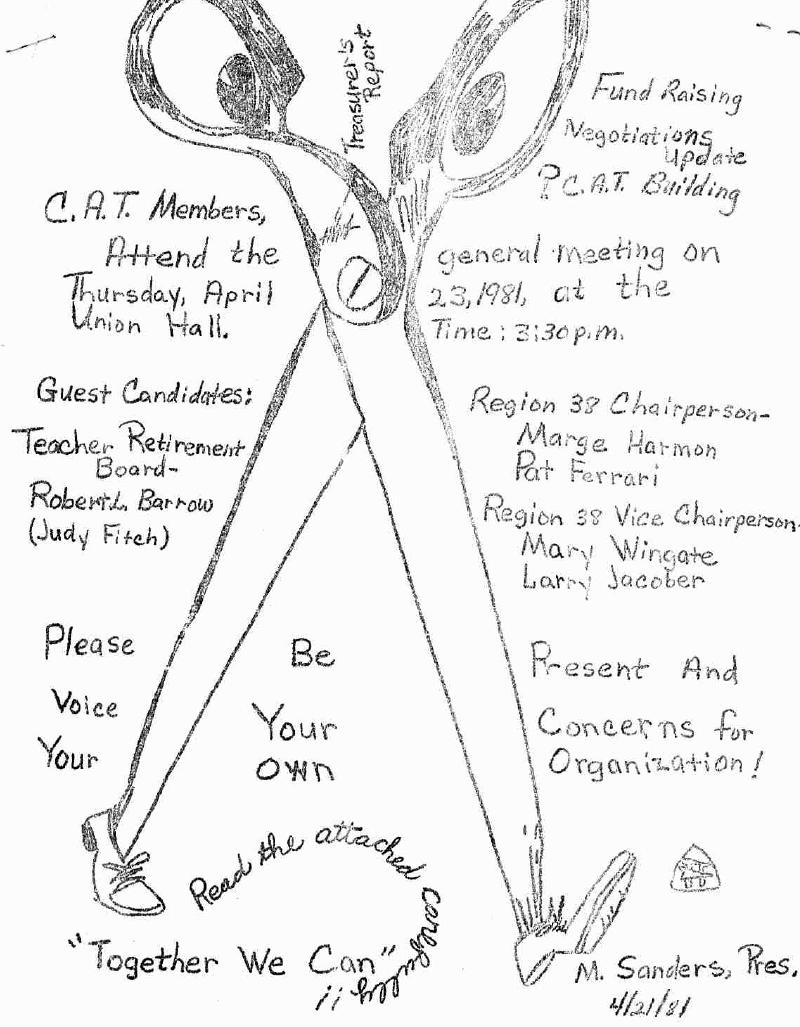 Treasurer's
Report
Fund Raising
Negotiations
Update
? C.A.T. Building
C.A.T. Members,
Attend the general meeting on
Thursday, April 23, 1981, at the
Union Hall. Time: 3:30 p.m.
Guest Candidates:
Teacher Retirement
Board-
Robert L. Barrow
(Judy Fitch)
Region 38 Chairperson-
Marge Harmon
Pat Ferrari
Region 38 Vice Chairperson-
Mary Wingate
Larry Jacober
Please Be Present And
Voice Your Concerns for
Your Own Organization!
Read the attached carefully!!
"Together We Can"
M. Sanders, Pres.
4/21/81